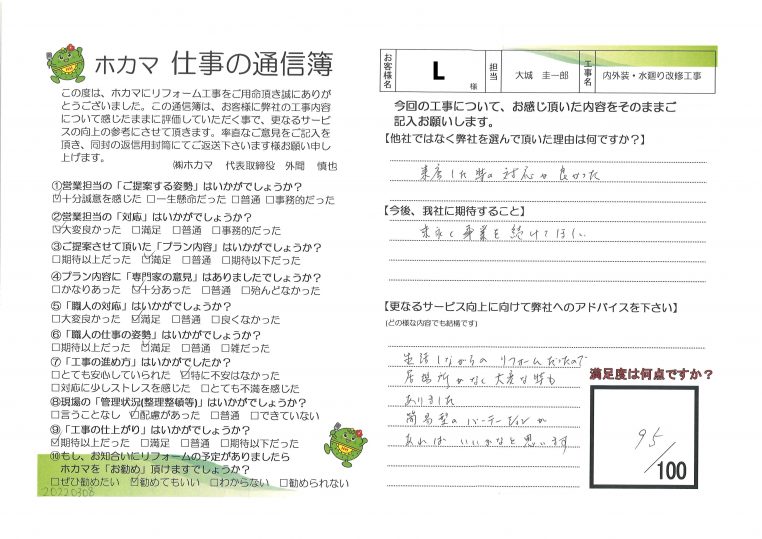 ホカマ 仕事の通信簿
この度は、ホカマにリフォーム工事をご用命頂き誠にありが
とうございました。この通信簿は、お客様に弊社の工事内容
について感じたままに評価していただく事で、更なるサービ
スの向上の参考にさせて頂きます。率直なご意見をご記入を
頂き、同封の返信用封筒にてご返送下さいます様お願い申し
上げます。
㈱ホカマ 代表取締役 外間 慎也
①営業担当の「ご提案する姿勢」はいかがでしょうか?
☑十分誠意を感じた □一生懸命だった □普通 □事務的だった
②営業担当の「対応」はいかがでしょうか?
☑大変良かった □満足 □普通 □事務的だった
③ご提案させて頂いた「プラン内容」はいかがでしょうか?
□期待以上だった ☑満足 □普通 □期待以下だった
④プラン内容に「専門家の意見」はありましたでしょうか?
□かなりあった ☑十分あった □普通 □殆んどなかった
⑤「職人の対応」はいかがでしょうか?
□大変良かった ☑満足 □普通 □良くなかった
⑥「職人の仕事の姿勢」はいかがでしょうか?
□期待以上だった ☑満足 □普通 □雑だった
⑦「工事の進め方」はいかがでしたか?
□とても安心していられた ☑特に不安はなかった
□対応に少しストレスを感じた □とても不満を感じた
⑧現場の「管理状況(整理整頓等)」はいかがでしょうか?
□言うことなし ☑配慮があった □普通 □できていない
⑨「工事の仕上がり」はいかがでしょうか?
☑期待以上だった □満足 □普通 □期待以下だった
⑩もし、お知合いにリフォームの予定がありましたら
ホカマを「お勧め」頂けますでしょうか?
□ぜひ勧めたい ☑勧めてもいい □わからない □勧められない
20220308
お客様名 L 様 担当 大城 圭一郎 工事名 内外装・水廻り改修工事
今回の工事について、お感じ頂いた内容をそのままご
記入お願いします。
【他社ではなく弊社を選んで頂いた理由は何ですか?】
来店した時の対応が良かった
【今後、我社に期待すること】
末永く事業を続けてほしい
【更なるサービス向上に向けて弊社へのアドバイスを下さい】
(どの様な内容でも結構です)
生活しながらのリフォームだったので
居場所がなく大変な時も
ありました
簡易型のパーテーションが
あればいいかなと思います
満足度は何点ですか?
95/100